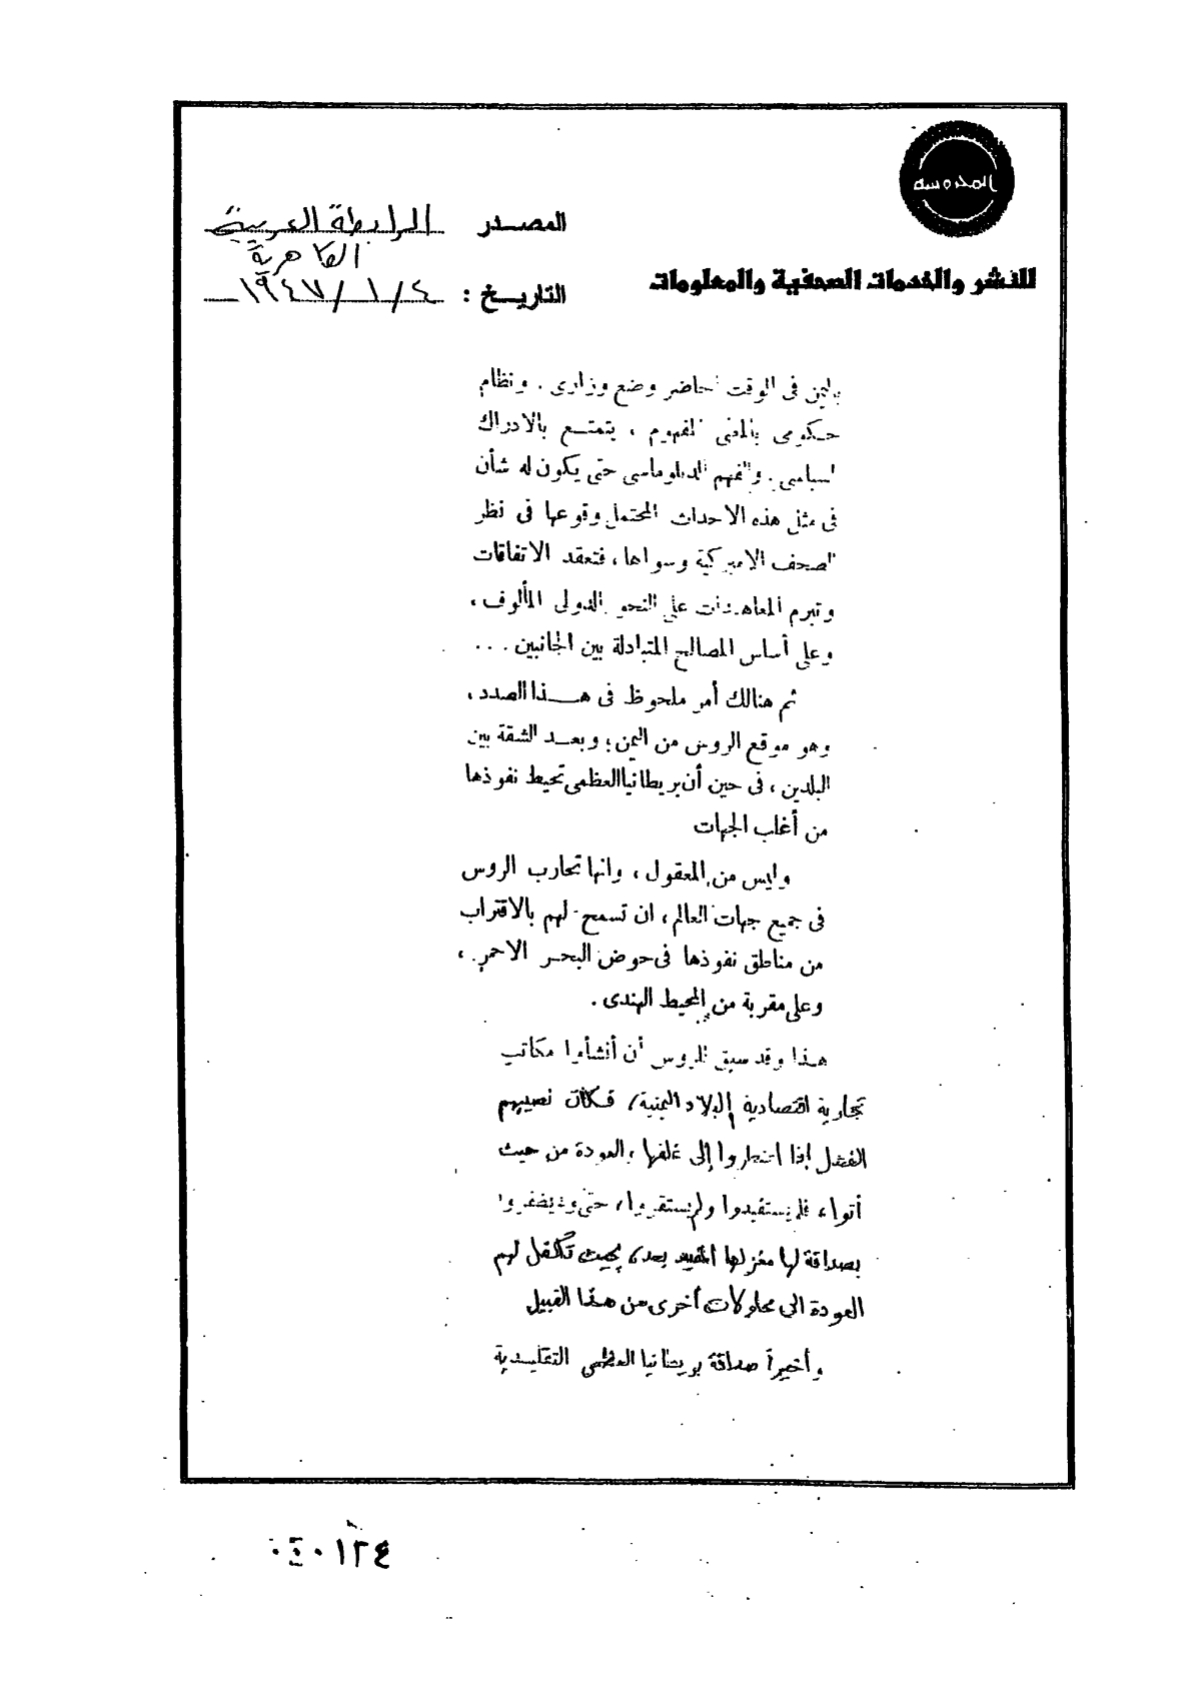 المحروسة
للنشر والخدمات الصحفية والمعلومات
المصدر الرابطة العربية
القاهرية
التاريخ : ٤/١/١٩٤٧
باليمن فى الوقت الحاضر وضع وزارى . ونظام
حكومى بالمعنى المفهوم ، يتمتع بالادراك
السياسى . والفهم الدبلوماسى حتى يكون له شأن
فى مثل هذه الاحداث المحتمل وقوعها فى نظر
الصحف الاميركية وسواها ، فتعقد الاتفاقات
وتبرم المعاهدات على النحو الدولى المألوف ،
وعلى أساس المصالح المتبادلة بين الجانبين . . .
ثم هنالك أمر ملحوظ فى هذا الصدد ،
وهو موقع الروس من اليمن ؛ وبعد الشقة بين
البلدين ، فى حين أن بريطانيا العظمى تحيط نفوذها
من أغلب الجهات
وليس من المعقول ، وانها تحارب الروس
فى جميع جهات العالم ، ان تسمح لهم بالاقتراب
من مناطق نفوذها فى حوض البحر الاحمر ،
وعلى مقربة من المحيط الهندى .
هذا وقد سبق للروس أن أنشأوا مكاتب
تجارية اقتصادية البلاد اليمنية ، فكان نصيبهم
الفشل إذا اضطروا إلى غلقها ، العودة من حيث
أتوا ، فلم يستفيدوا ولم يستقروا ، حتى
بصداقة لها مغزلها بعد ، بحيث تكفل لهم
العودة الى محاولات أخرى من هذا القبيل
وأخيراً صداقة بريطانيا العظمى التقليدية